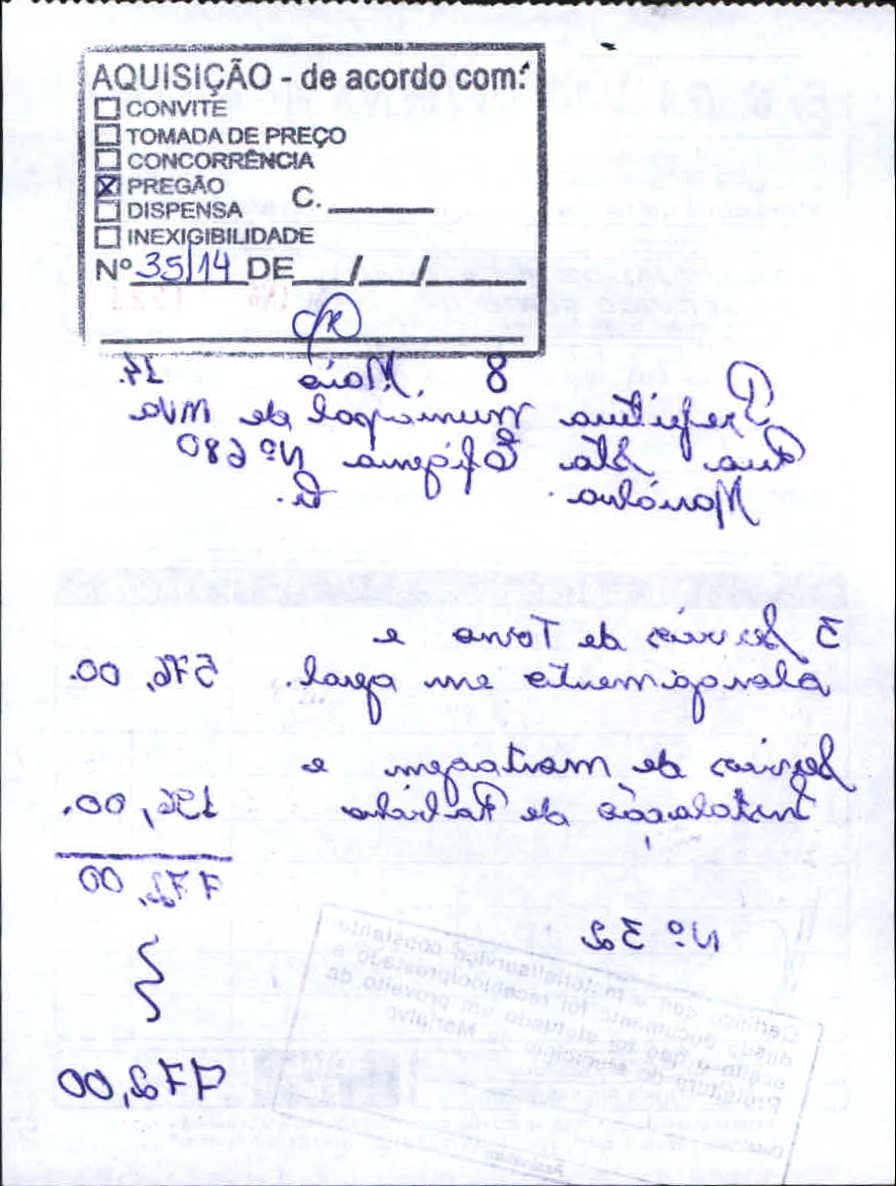 AQUISIÇÃO - de acordo com:
CONVITE
TOMADA DE PREÇO
CONCORRÊNCIA
PREGÃO
DISPENSA C.
INEXIGIBILIDADE
Nº 35/14 DE / /
8 Maio 14.
Prefeitura municipal de Mva
Rua Sta Efigenia Nº 680
Marialva. Pr.
3 Servicos de Torno e
alongamento em geral. 576,00.
Servicos de montagem e
Instalação de Rabicho 196,00.
772,00
Nº 32
Certifico que o material/serviço constante
deste documento foi recebido/prestado e
aceito e que foi efetuado em proveito da
Prefeitura do Município de Marialva
772,00